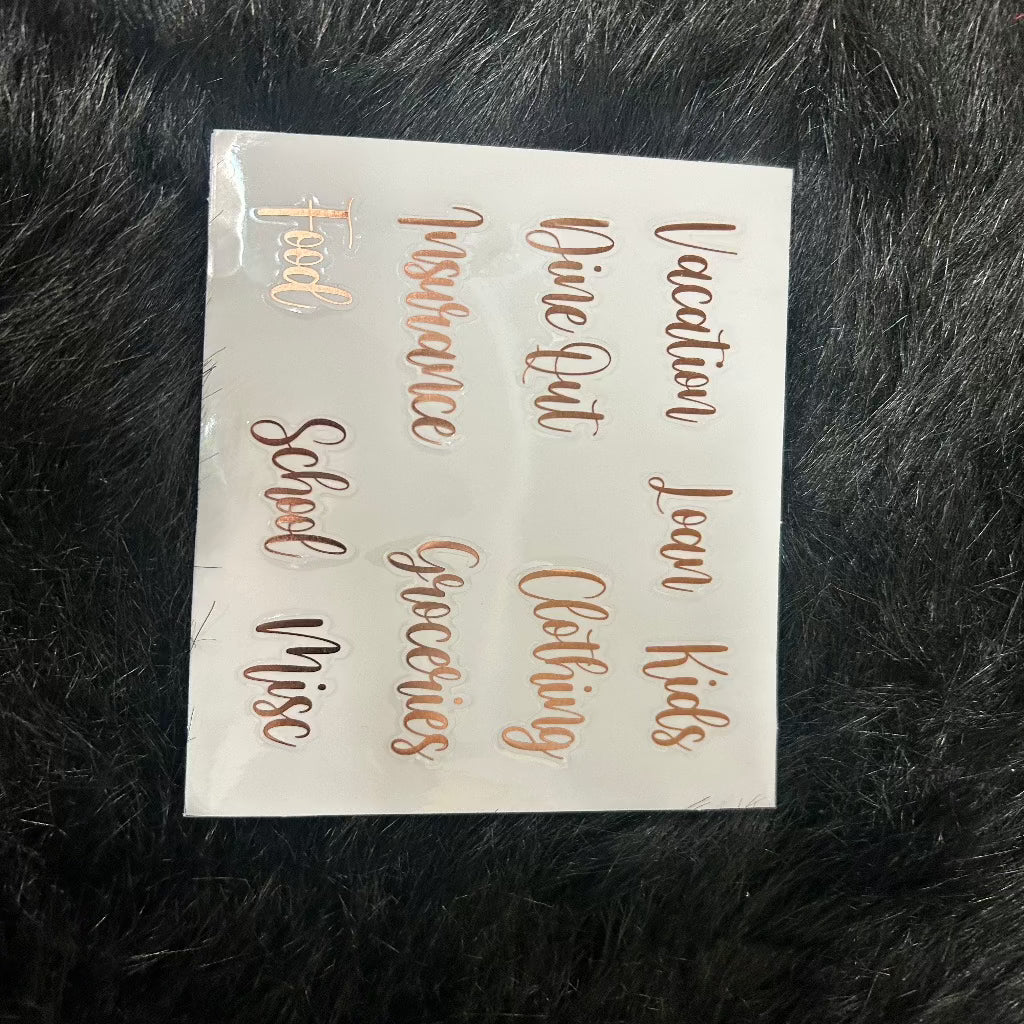 Vacation Loan Kids
Dine Out Clothing
Insurance Groceries
Food School Misc